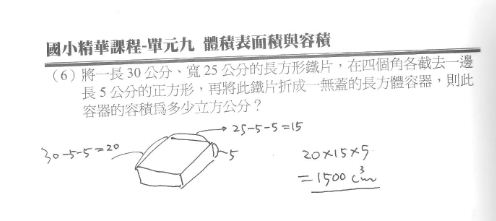 國小精華課程-單元九 體積表面積與容積
（6）將一長 30 公分、寬 25 公分的長方形鐵片，在四個角各截去一邊
長 5 公分的正方形，再將此鐵片折成一無蓋的長方體容器，則此
容器的容積為多少立方公分？
25-5-5=15
30-5-5=20
5
20×15×5
=1500 cm³